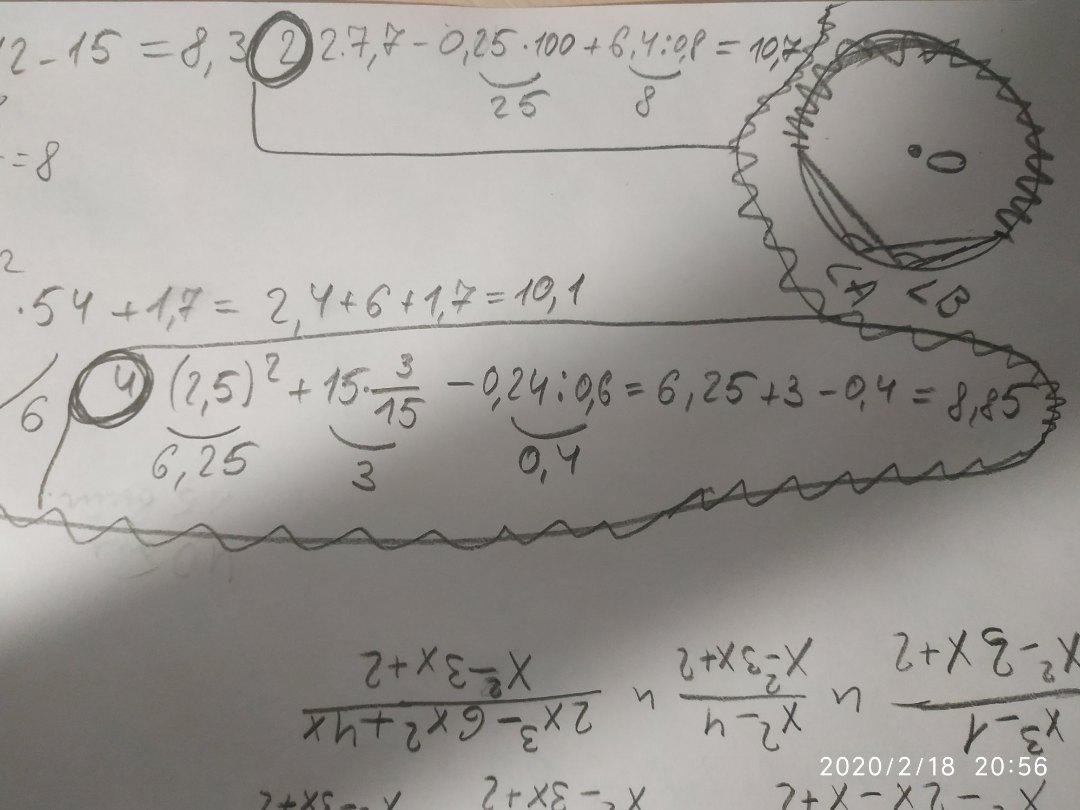 12 - 15 = 8,3 2 2·7,7 - 0,25·100 + 6,4:0,8 = 10,7
25 8
= 8
O
2
·54 + 1,7 = 2,4 + 6 + 1,7 = 10,1
∠A ∠B
6 4 (2,5)² + 15·3/15 - 0,24:0,6 = 6,25 + 3 - 0,4 = 8,85
6,25 3 0,4
x³-1/x²-3x+2 и x²-4/x²-3x+2 и 2x³-6x²+4x/x²-3x+2
2020/2/18 20:56